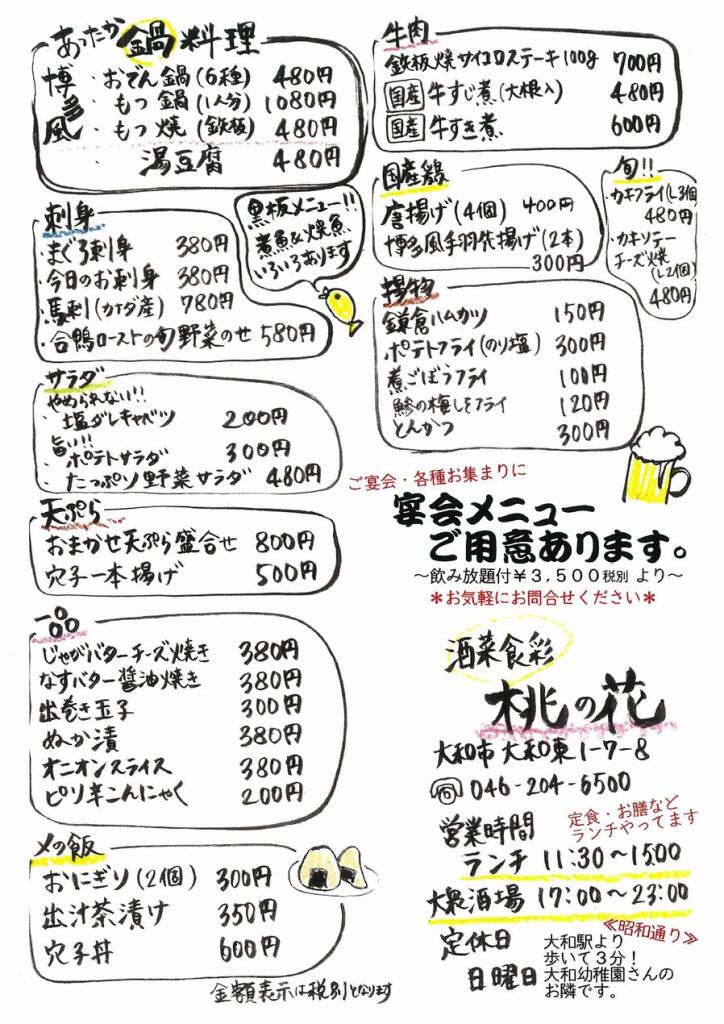 あったか鍋料理
博多風
・おでん鍋(6種) 480円
・もつ鍋(1人分) 1080円
・もつ焼(鉄板) 480円
湯豆腐 480円
刺身
・まぐろ刺身 380円
・今日のお刺身 380円
・馬刺(カナダ産) 780円
・合鴨ローストの旬野菜のせ 580円
黒板メニュー!!
煮魚&焼魚
いろいろあります
サラダ
やめられない!!
・塩ダレキャベツ 200円
旨い!!
・ポテトサラダ 300円
・たっぷり野菜サラダ 480円
天ぷら
おまかせ天ぷら盛合せ 800円
穴子一本揚げ 500円
一品
じゃがバターチーズ焼き 380円
なすバター醤油焼き 380円
出巻き玉子 300円
ぬか漬 380円
オニオンスライス 380円
ピリ辛こんにゃく 200円
〆の飯
おにぎり(2個) 300円
出汁茶漬け 350円
穴子丼 600円
金額表示は税別となります
牛肉
鉄板焼サイコロステーキ100g 700円
国産牛すじ煮(大根入) 480円
国産牛すき煮 600円
国産鶏
唐揚げ(4個) 400円
博多風手羽先揚げ(2本)
300円
旬!!
・カキフライ(L3個)
480円
・カキソテー
チーズ焼
(L2個)
480円
揚物
鎌倉ハムカツ 150円
ポテトフライ(のり塩) 300円
煮ごぼうフライ 100円
鯵の梅しそフライ 120円
とんかつ 300円
ご宴会・各種お集まりに
宴会メニュー
ご用意あります。
～飲み放題付￥3,500税別 より～
＊お気軽にお問合せください＊
酒菜食彩
桃の花
大和市 大和東1-7-8
☎046-204-6500
営業時間
定食・お膳など
ランチやってます
ランチ 11:30～15:00
大衆酒場 17:00～23:00
≪昭和通り≫
定休日
日曜日
大和駅より
歩いて3分！
大和幼稚園さんの
お隣です。